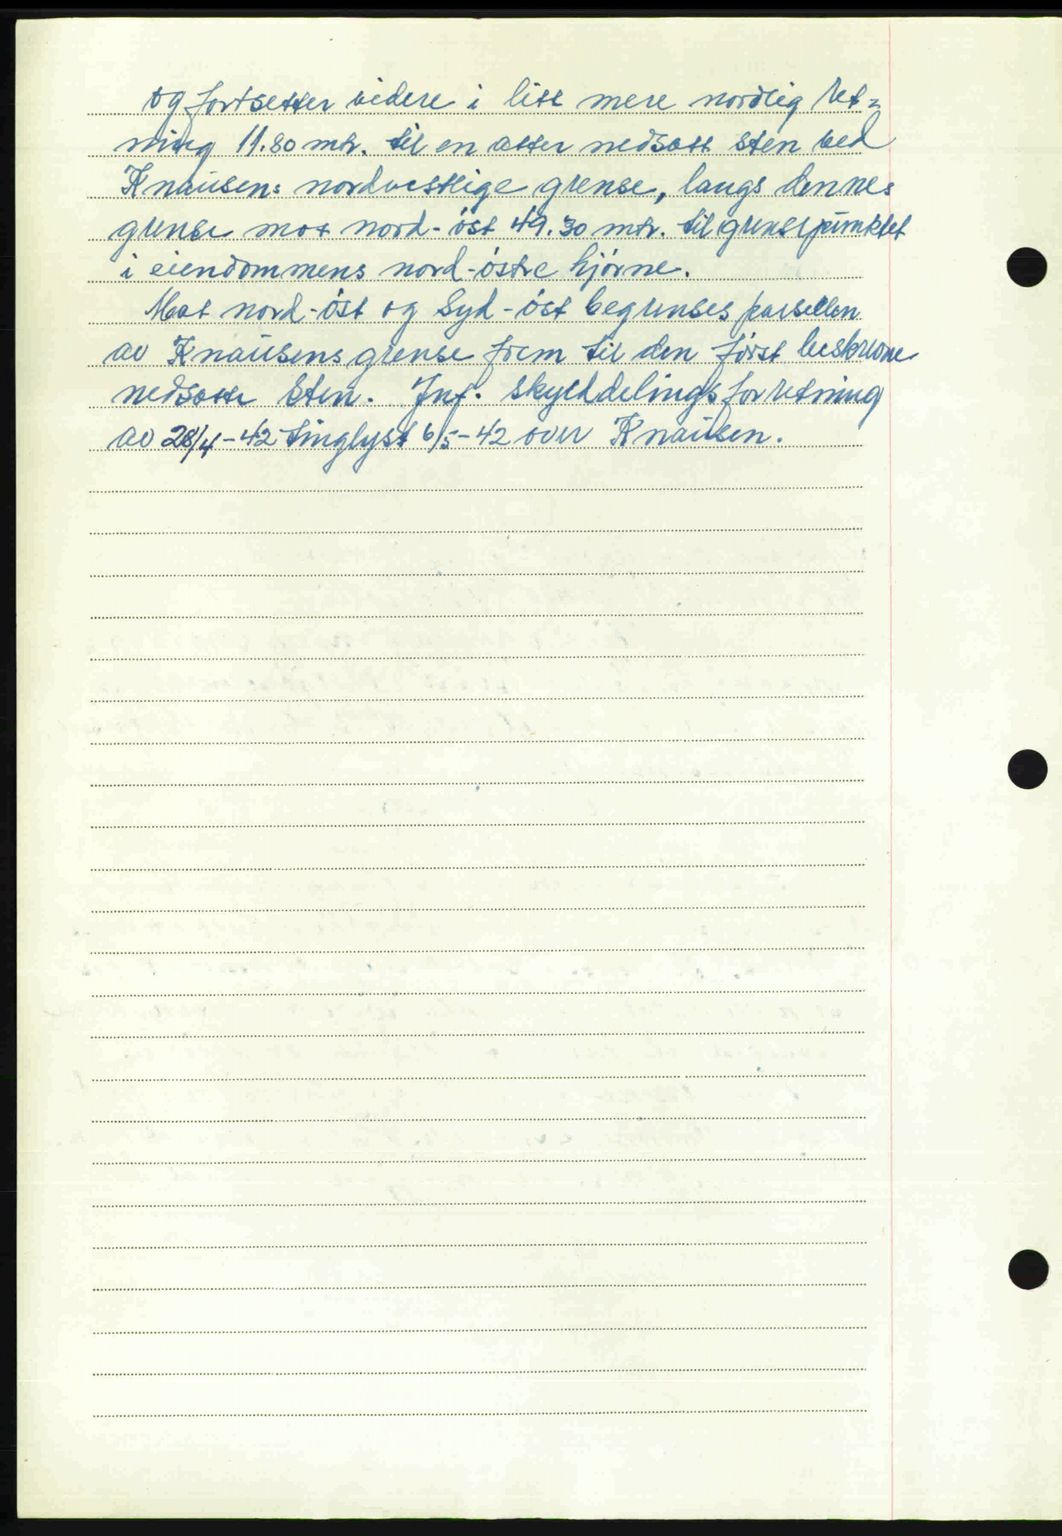 og fortsetter videre i litt mere nordlig ret-
ning 11.80 mtr. til en atter nedsatt sten ved
Knausens nordvestlige grense, langs dennes
grense mot nord-öst 49.30 mtr. til grensepunktet
i eiendommens nord-östre hjörne.
Mot nord-öst og Syd-öst begrenses parsellen
av Knausens grense frem til den först beskrevne
nedsatte Sten. Jnf. skylddelingsforretning
av 28/4-42 tinglyst 6/5-42 over Knausen.